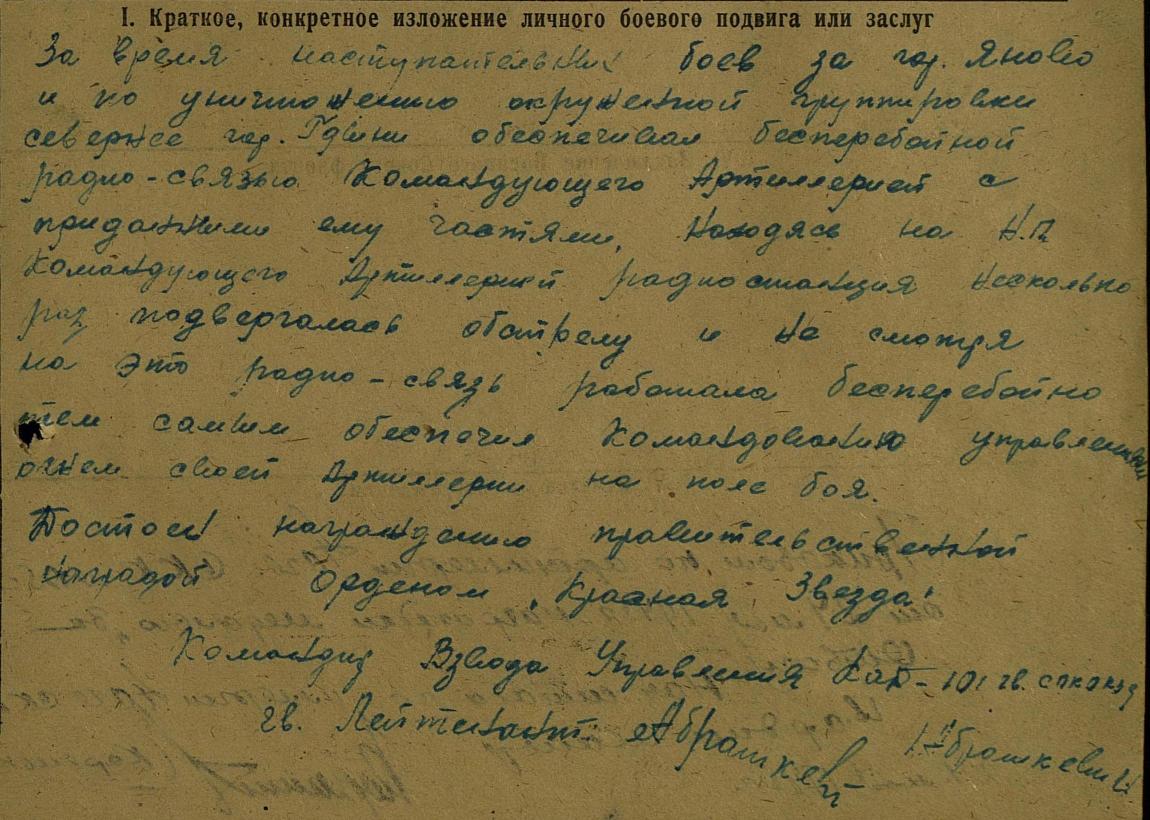 I. Краткое, конкретное изложение личного боевого подвига или заслуг
За время наступательных боев за гор. Яново
и по уничтожению окруженной группировки
севернее гор. Гдыни обеспечивал бесперебойной
радио-связью Командующего Артиллерией с
приданными ему частями, Находясь на Н.П.
Командующего Артиллерией радиостанция несколько
раз подвергалась обстрелу и не смотря
на это радио-связь работала бесперебойно
тем самым обеспечил Командованию управление
огнем своей Артиллерии на поле боя.
Достоин награждению правительственной
наградой Орденом "Красная Звезда"
Командир Взвода Управления КАД-101 гв.
гв. Лейтенант Абрашкевич